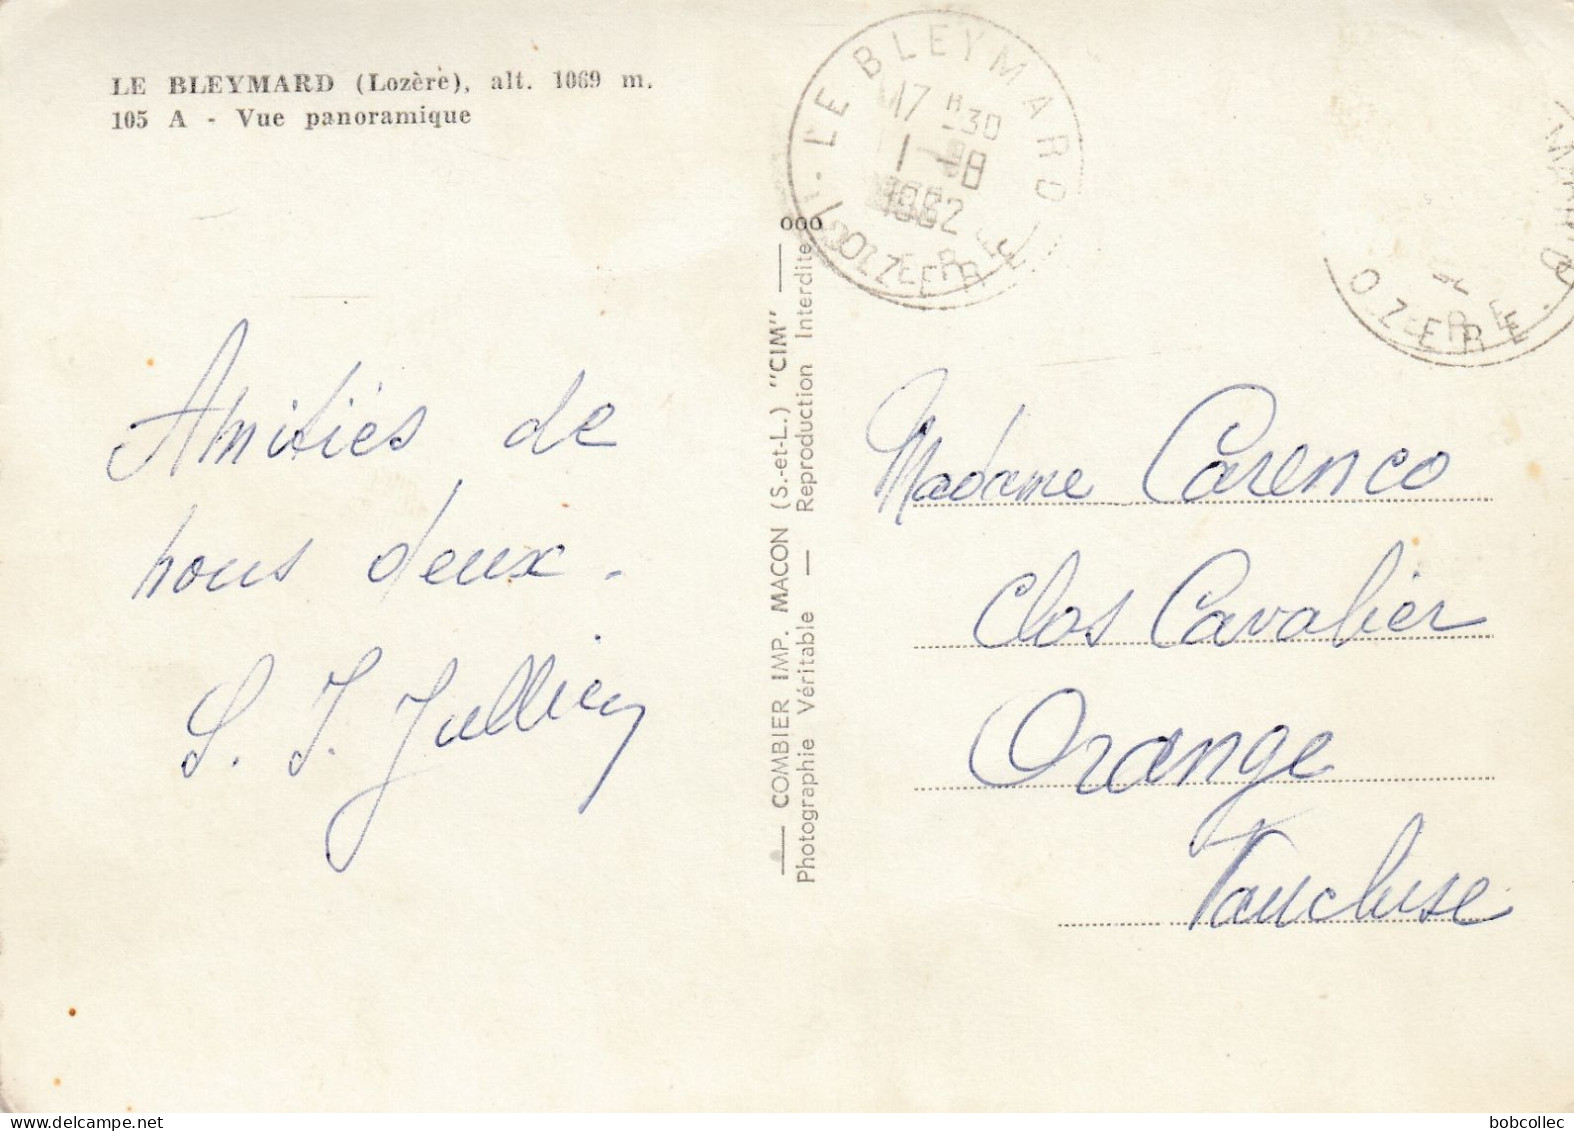 LE BLEYMARD (Lozère), alt. 1069 m.
105 A - Vue panoramique
LE BLEYMARD
17 H 30
1 - 8
1962
LOZERE
OZERE
Amitiés de
nous deux.
S. J. Jullien
COMBIER IMP. MACON (S.-et-L.) "CIM"
Photographie Véritable — Reproduction Interdite
Madame Carenco
Clos Cavalier
Orange
Vaucluse
bobcollec